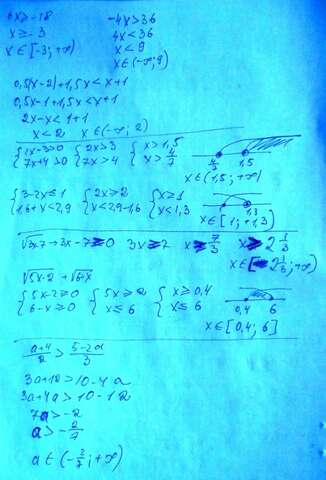 6x ≥ -18
x ≥ -3
x ∈ [-3; +∞)
-4x > 36
4x < 36
x < 9
x ∈ (-∞; 9)
0,5(x-2)+1,5x < x+1
0,5x-1+1,5x < x+1
2x-x < 1+1
x < 2 x ∈ (-∞; 2)
7x+4>0 { 2x>3 7x>4 { x>1,5 x>4/7
4/7 1,5
x ∈ (1,5; +∞)
{ 3-2x ≤ 1 1,6+x < 2,9 { 2x ≥ 2 x < 2,9-1,6 { x ≥ 1 x < 1,3
1 1,3
x ∈ [1; 1,3)
√3x-7 → 3x-7 ≥ 0 3x ≥ 7 x ≥ 7/3 x ≥ 2 1/3
x ∈ [2 1/3; +∞)
√5x-2 + √6-x
{ 5x-2 ≥ 0 6-x ≥ 0 { 5x ≥ 2 x ≤ 6 { x ≥ 0,4 x ≤ 6
0,4 6
x ∈ [0,4; 6]
a+4/2 > 5-2a/3
3a+12 > 10-4a
3a+4a > 10-12
7a > -2
a > -2/7
a ∈ (-2/7; +∞)